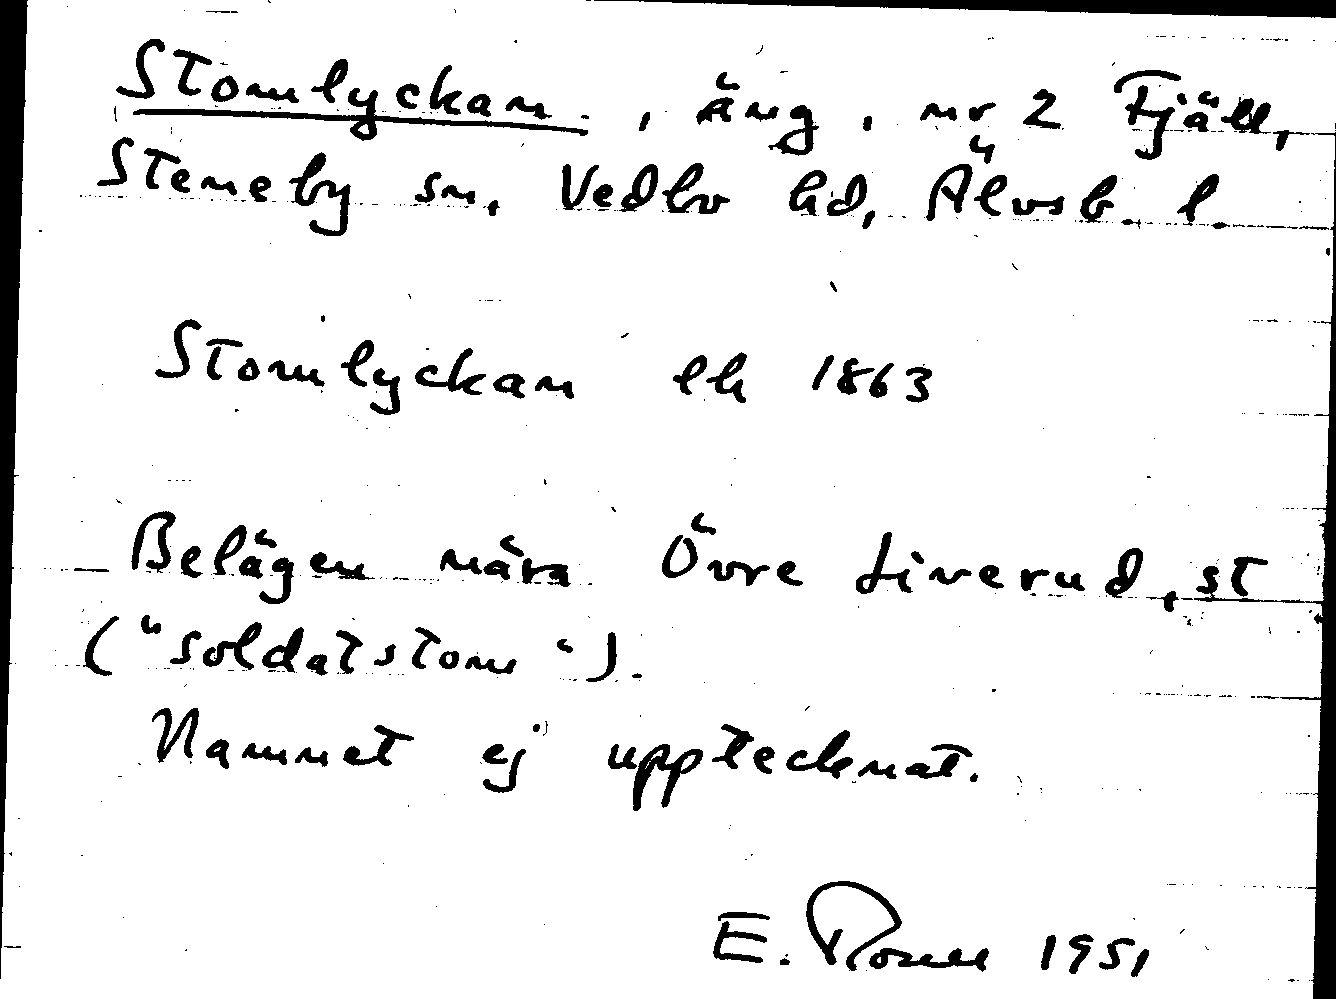 Stomlyckan, äng, nr 2 Fjäll,
Steneby sn, Vedbo hd, Älvsb. l.
Stomlyckan lh 1863
Belägen nära Övre Liverud, st
("soldatstom").
Namnet ej upptecknat.
E. Rosell 1951